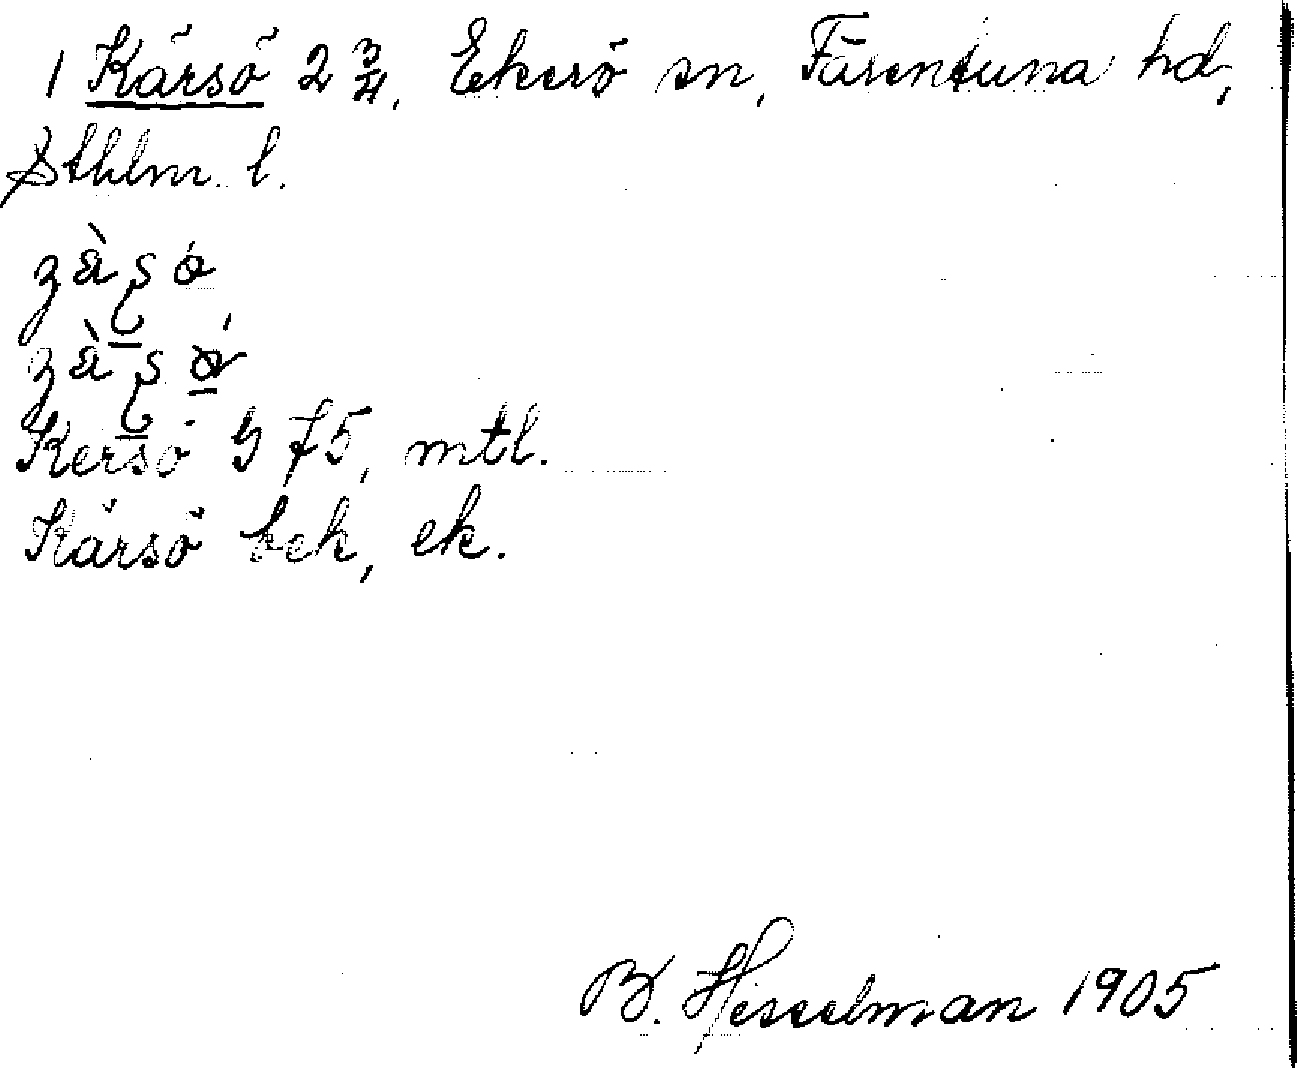 1 Kärsö 2 3/4, Ekerö sn, Färentuna hd,
Sthlm. l.
Kersö § 75, mtl.
Kärsö bek, ek.
B. Hesselman 1905